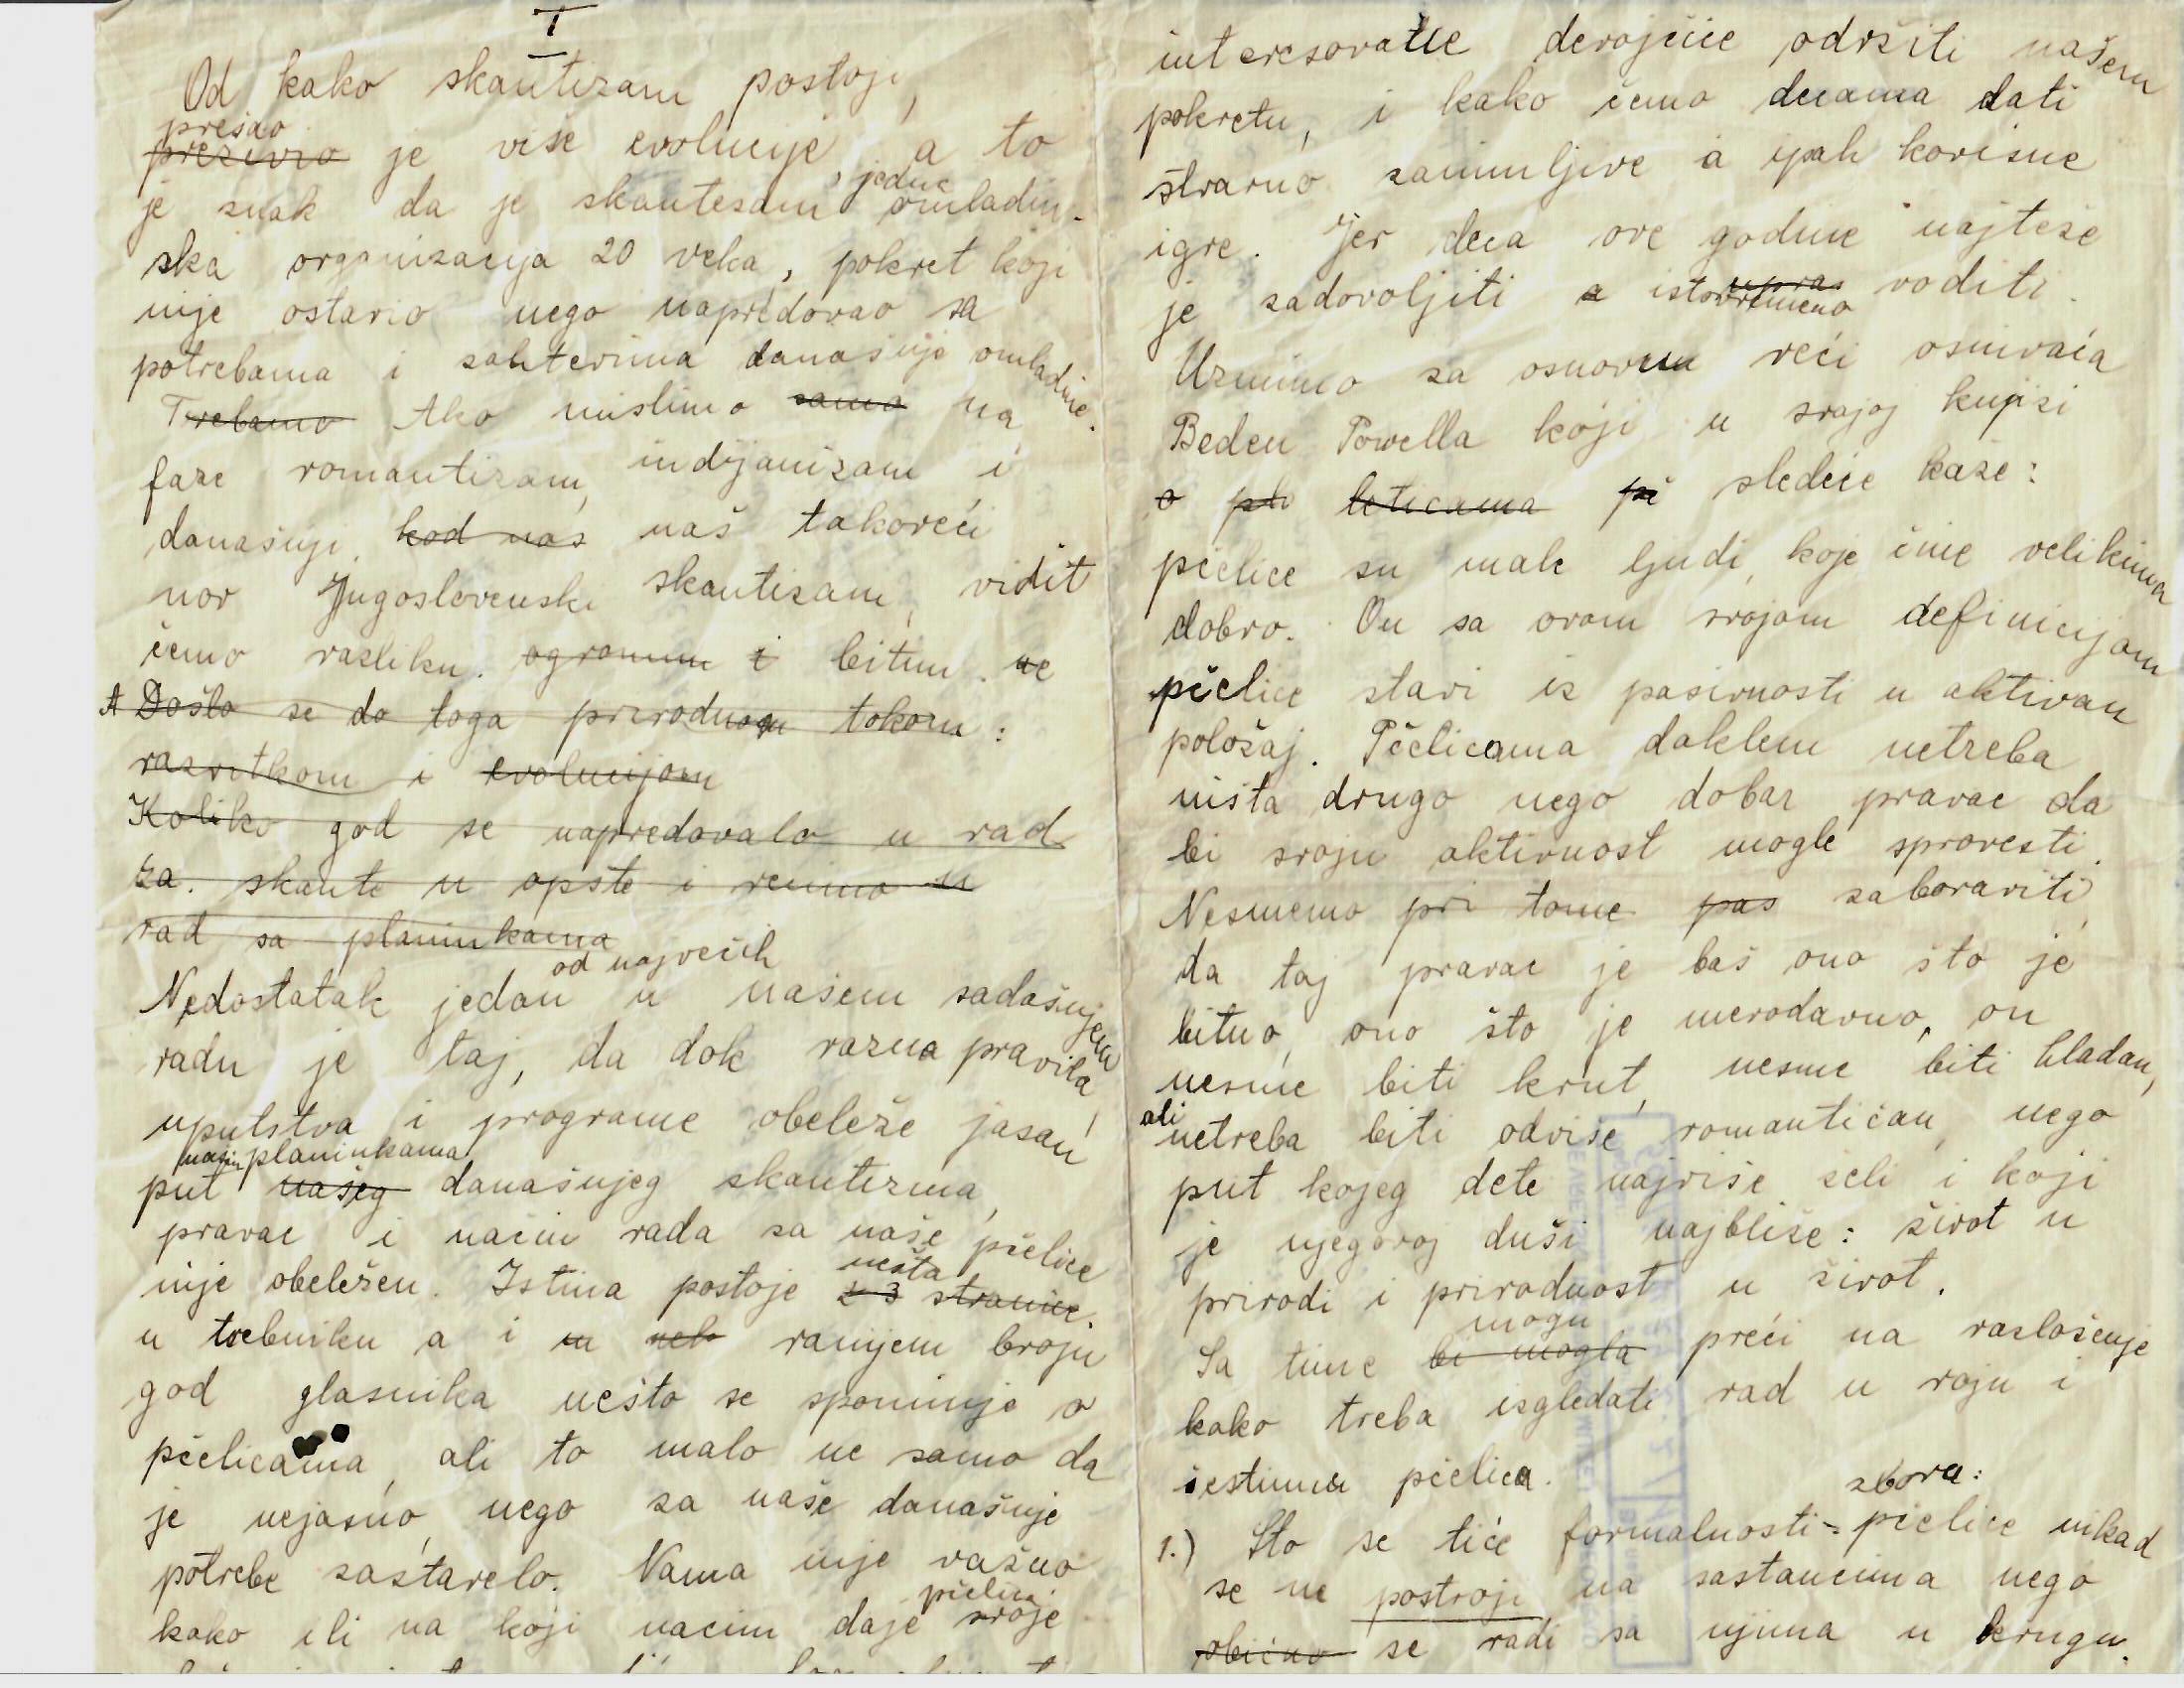 I
Od kako skautizam postoji,
prešao
preživio je više evolucije, a to
jedne
je znak da je skautesam omladin-
ska organizacija 20 veka, pokret koji
nije ostario nego napredovao sa
potrebama i zahtevima današnje omladine.
Trebamo Ako mislimo samo na
faze romantizam, indijanizam i
današnji, kod nas naš takoreći
nov Jugoslovenski skautizam, vidit
ćemo razliku. ogromnu i bitnu. ne
A Došlo se do toga prirodnom tokom:
razvitkom i evolucijom
Koliko god se napredovalo u rad
za. skaute u opšte i recimo u
rad sa planinkama
od najvećih
Nedostatak jedan u našem sadašnjem
radu je taj, da dok razna pravila,
uputstva i programe obeleže jasan
našim planinkama
put našeg današnjeg skautizma,
pravac i način rada za naše pčelice
nije obeležen. Istina postoje 2-3 stranice.
nešta
u trebniku a i u nek ranijem broju
god glasnika nešto se spominje o
pčelicama, ali to malo ne samo da
je nejasno, nego za naše današnje
potrebe zastarelo. Nama nije važno
pčelica
kako ili na koji nacin daje svoje
interesovanje devojčice održiti našem
pokretu, i kako ćemo decama dati
stvarno zanimljive a ipak korisne
igre. Jer deca ove godine najteže
je zadovoljiti a istovremeno upra voditi.
Uzmimo za osnovu reči osnivača
Beden Powella koji u svojoj knjizi
o pče leticama pč sledeće kaže:
pčelice su male ljudi, koje čine velikima
dobro. On sa ovom svojom definicijom
pčelice stavi iz pasivnosti u aktivan
položaj. Pčelicama daklem netreba
ništa drugo nego dobar pravac da
bi svoju aktivnost mogle sprovesti.
Nesmemo pri tome pas zaboraviti,
da taj pravac je baš ono što je
bitno, ono što je merodavno, on
nesme biti krut, nesme biti hladan,
ali
netreba biti odviše romantičan, nego
put kojeg dete najviše želi i koji
je njegovoj duši najbliže: život u
prirodi i prirodnost u život.
mogu
Sa time bi mogla preći na razloženje
kako treba izgledati rad u roju i
šestinu pčelica.
zbora:
1.) Što se tiče formalnosti - pčelice nikad
se ne postroji na sastancima nego
obično se radi sa njima u krugu.